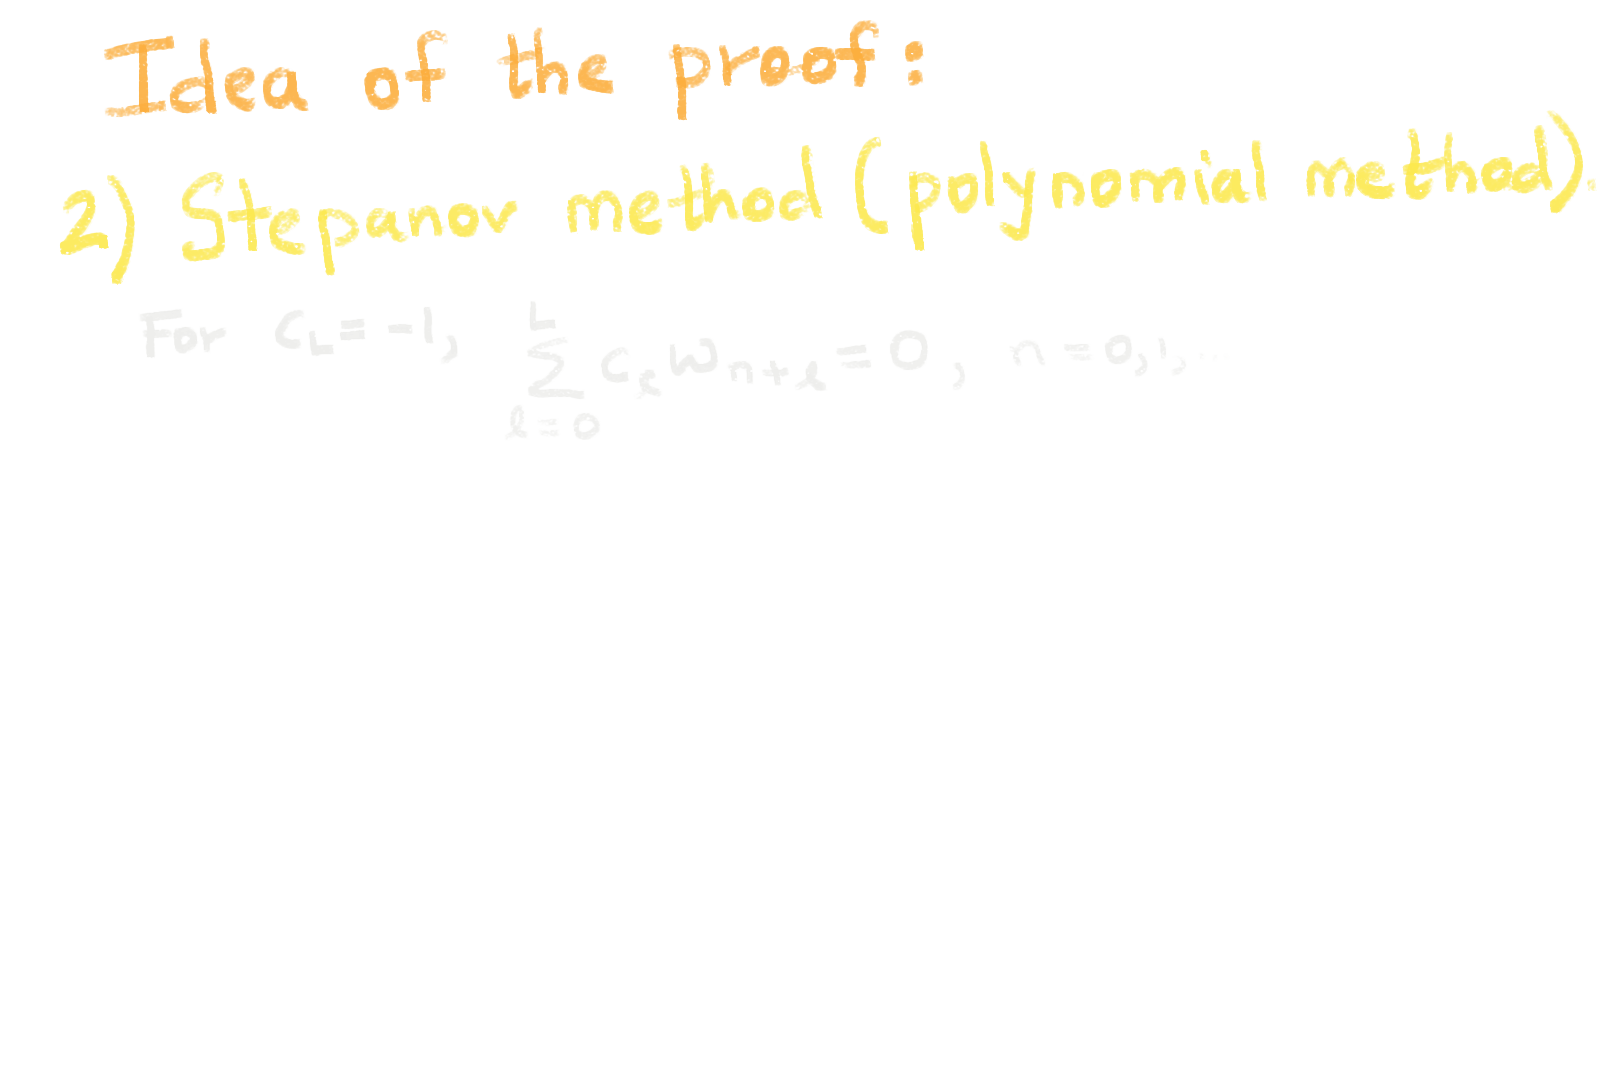 Idea of the proof:
2) Stepanov method (polynomial method).
For c_L = -1, \sum_{l=0}^{L} c_l w_{n+l} = 0, n = 0, 1, ...